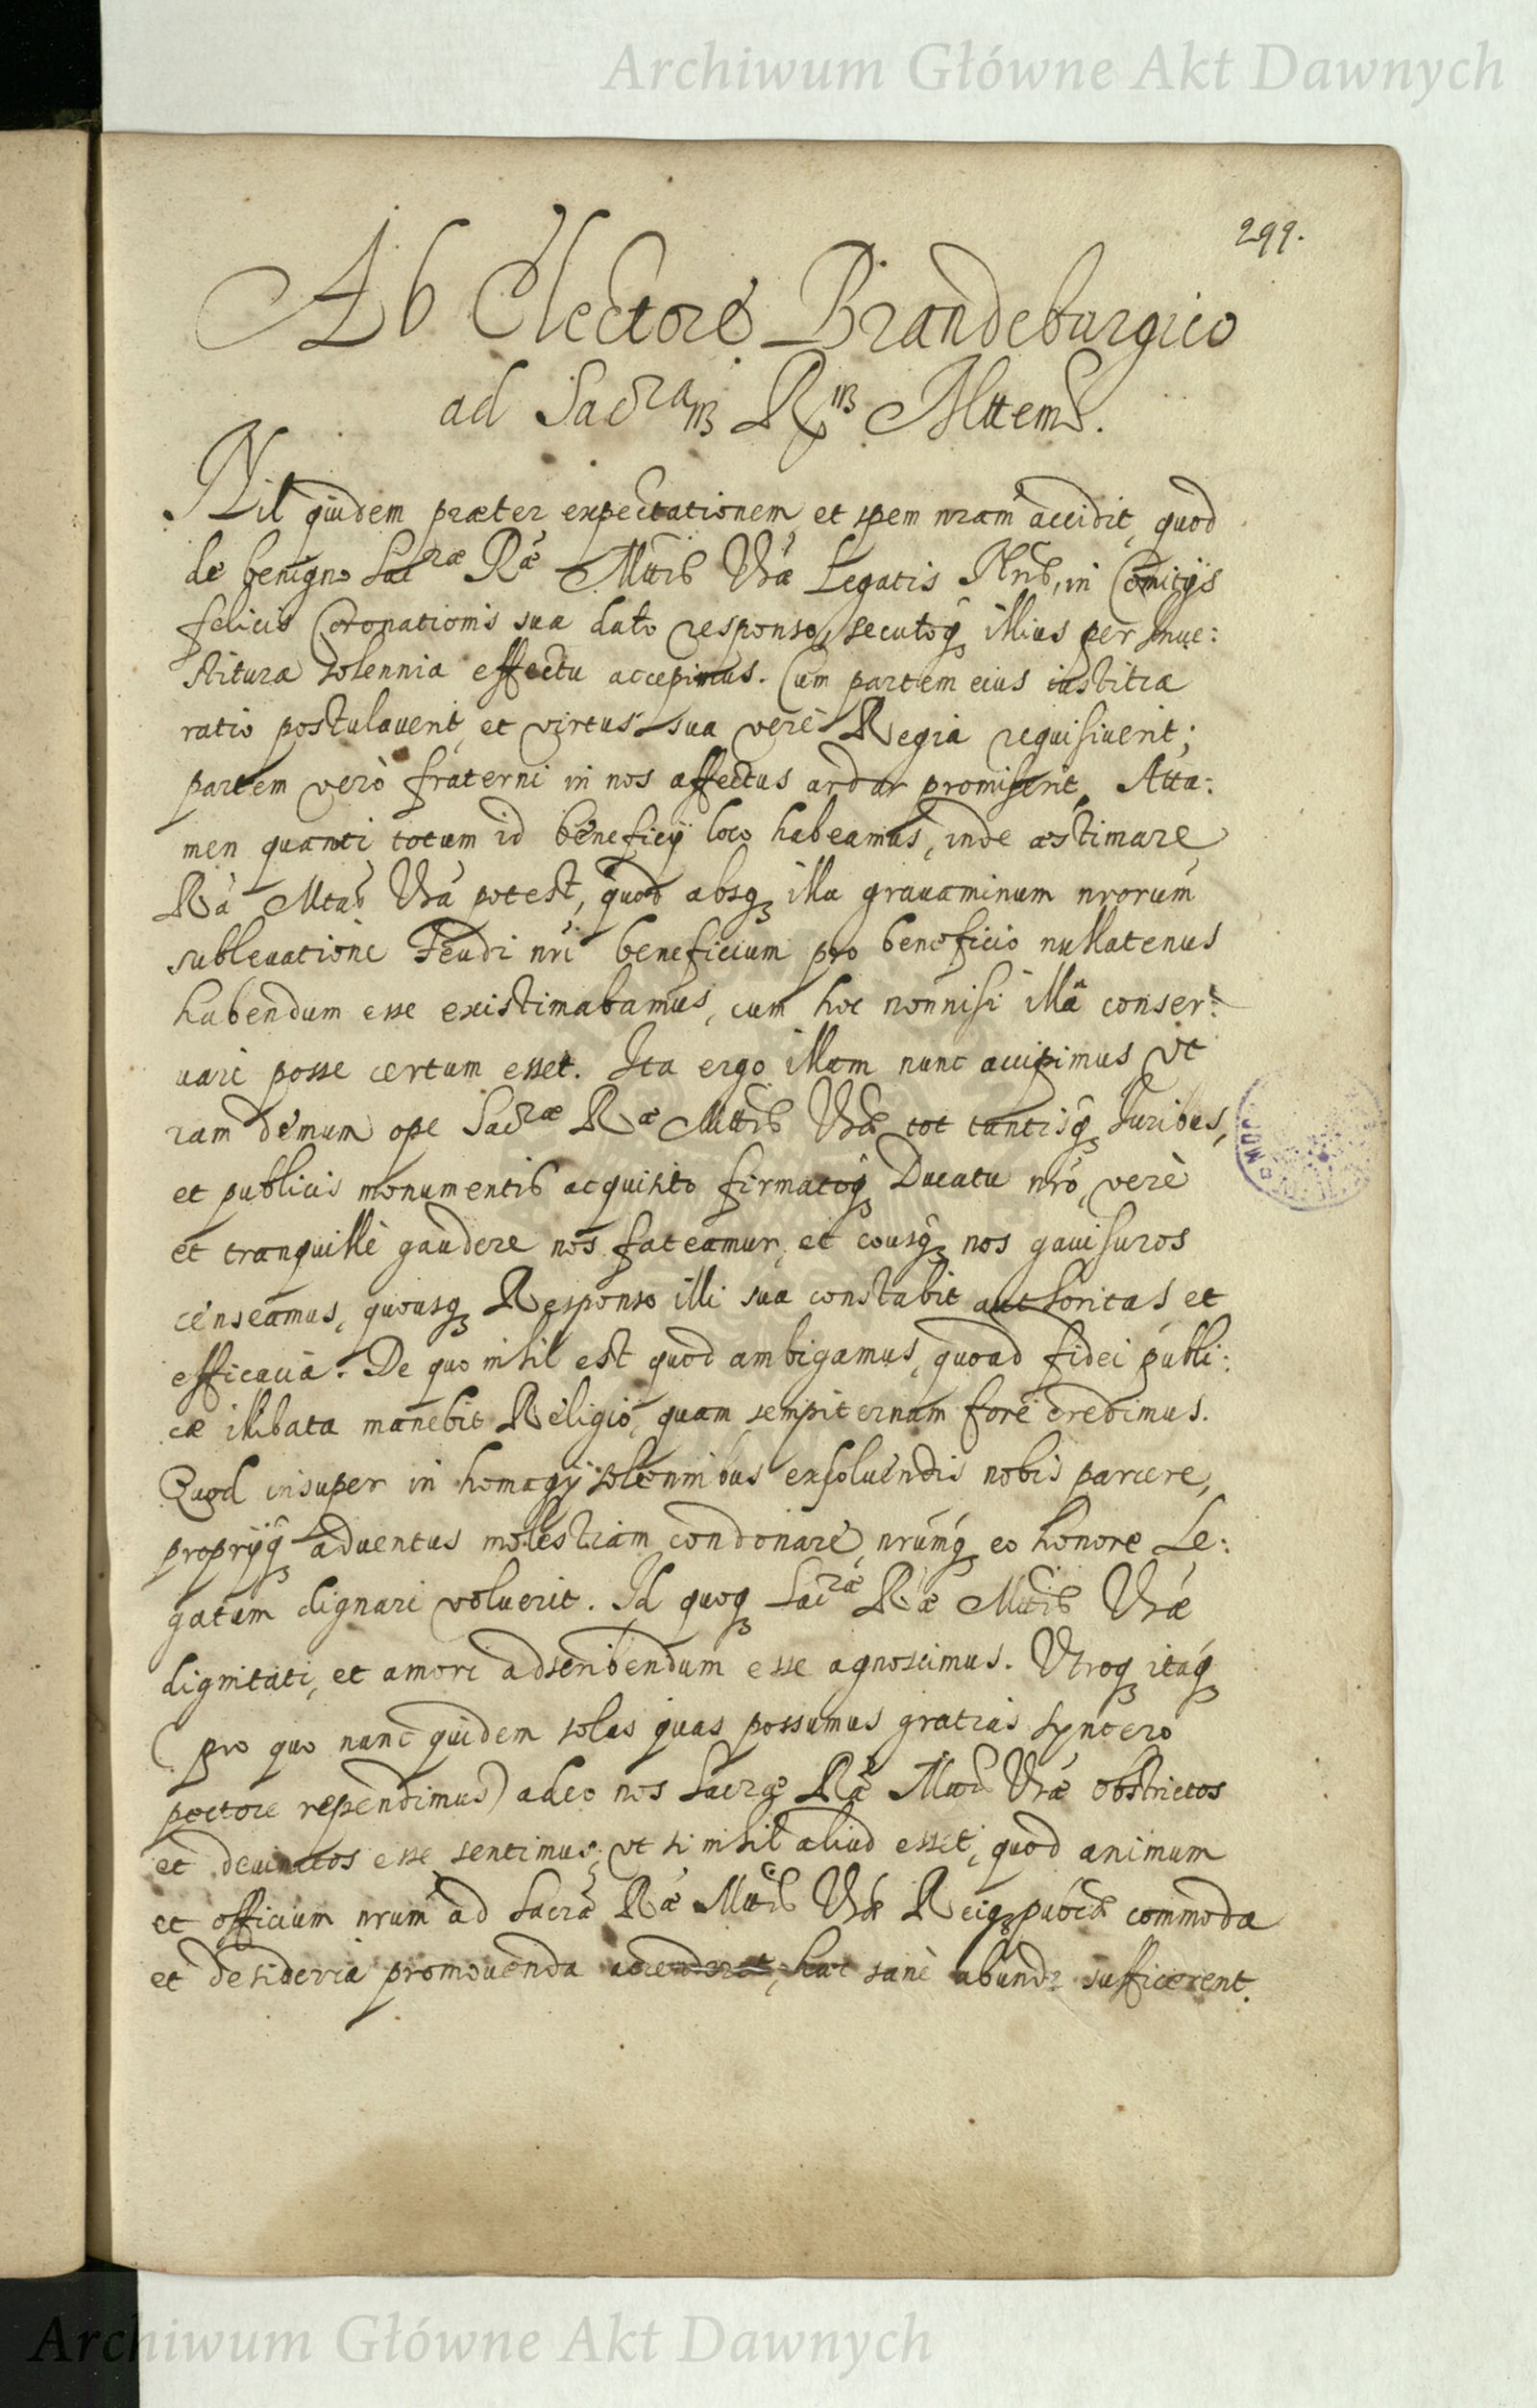 Archiwum Główne Akt Dawnych
299.
Ab Electore Brandeburgico
ad Sacram Rm Mttem.
Nil quidem præter expectationem et spem nram accidit, quod
de benigno Sacræ Ræ Mttis Vræ Legatis Nris, in Comitijs
felicis Coronationis suæ dato responso, secutoq illius per Inue:
stituræ solennia effectu accepimus. Cum partem eius iustitiæ
ratio postulauerit, et virtus sua verè Regia requisiuerit;
partem verò fraterni in nos affectus ardor promiserit, Atta:
men quanti totum id beneficij loco habeamus, inde æstimare
Ra Mtas Vra potest, quod absq illa grauaminum nrorum
subleuatione Feudi nri beneficium pro beneficio nullatenus
habendum esse existimabamus, cum hoc nonnisi illâ conser:
uari posse certum esset. Ita ergo illam nunc accipimus vt
iam demum ope Sacræ Ræ Mttis Vræ tot tantisq Iuribus,
et publicis monumentis acquisito firmatoq Ducatu nro, verè
et tranquillè gaudere nos fateamur, et eousq nos gauisuros
censeamus, quousq Responso illi sua constabit authoritas, et
efficacia. De quo nihil est quod ambigamus, quoad fidei publi:
cæ illibata manebit Religio, quam sempiternam fore credimus.
Quod insuper in homagij solennibus exsoluendis nobis parcere,
proprijq aduentus molestiam condonare, nrumq eo honore Le:
gatum dignari voluerit. Id quoq Sacræ Ræ Mttis Vræ
dignitati, et amori adscribendum esse agnoscimus. Vtroq itaq
(pro quo nunc quidem solas quas possumus gratias syncero
pectore rependimus) adeo nos Sacræ Ræ Mttis Vræ obstrictos
et deuinctos esse sentimus, vt si nihil aliud esset, quod animum
et officium nrum ad Sacræ Ræ Mttis Vræ Reiqpubcæ commoda
et desideria promouenda accenderet, hæc sanè abunde sufficerent.
Archiwum Główne Akt Dawnych